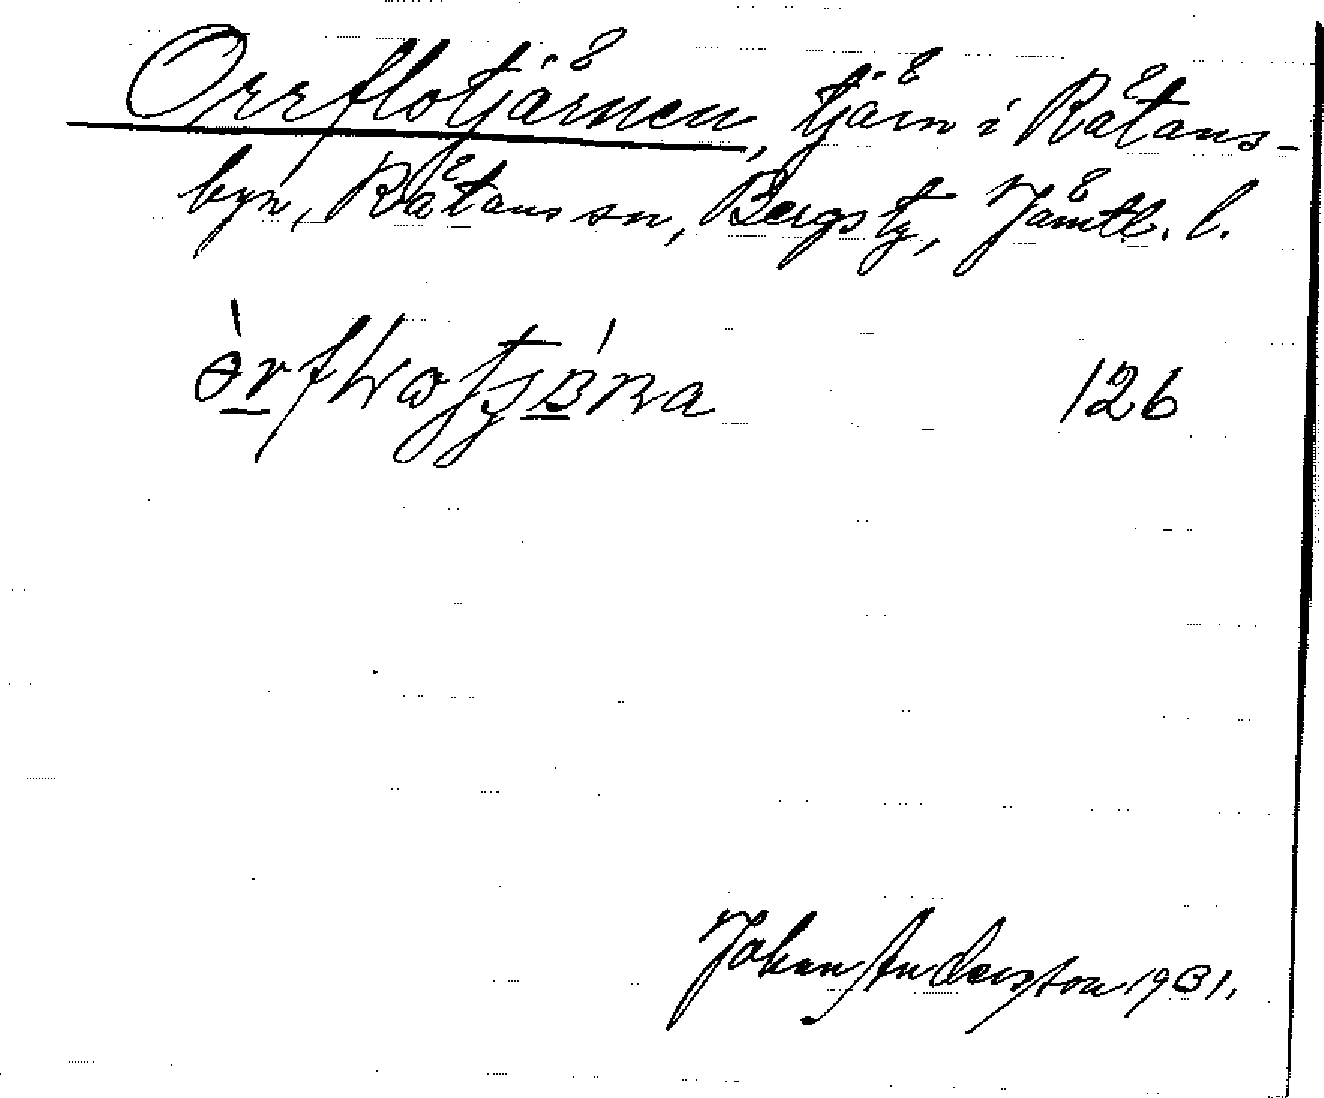 Orrflotjärnen, tjärn i Råtans-
byn, Råtans sn, Bergs tg, Jämtl. l.
126
Johan Andersson 1931.